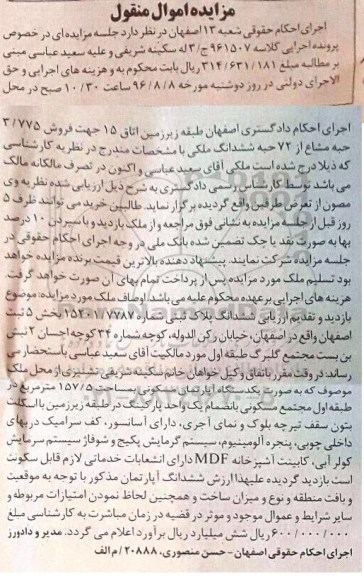 مزایده اموال منقول
اجرای احکام حقوقی شعبه ۱۳ اصفهان در نظر دارد جلسه مزایده ای در خصوص
پرونده اجرایی کلاسه ۹۶۱۵۰۷ ج/۳ له سکینه شریفی و علیه سعید عباسی مبنی
بر مطالبه مبلغ ۳۱۴/۶۳۱/۱۸۱ ریال بابت محکوم به و هزینه های اجرایی و حق
الاجرای دولتی در روز دوشنبه مورخه ۹۶/۸/۸ ساعت ۱۰/۳۰ صبح در محل
اجرای احکام دادگستری اصفهان طبقه زیرزمین اتاق ۱۵ جهت فروش ۳/۷۷۵
حبه مشاع از ۷۲ حبه ششدانگ ملکی با مشخصات مندرج در نظریه کارشناسی
که ذیلا درج شده است ملکی آقای سعید عباسی و اکنون در تصرف مالکانه مالک
می باشد توسط کارشناس رسمی دادگستری به شرح ذیل ارزیابی شده نظریه وی
مصون از تعرض طرفین واقع گردیده برگزار نماید. طالبین خرید می توانند ظرف ۵
روز قبل از جلسه مزایده به نشانی فوق مراجعه و از ملک بازدید و با سپردن ۱۰ درصد
بها به صورت نقد یا چک تضمین شده بانک ملی در وجه اجرای احکام حقوقی در
جلسه مزایده شرکت نمایند. پیشنهاد دهنده بالاترین قیمت برنده مزایده خواهد
بود تسلیم ملک مورد مزایده پس از پرداخت تمام بهای آن صورت خواهد گرفت.
هزینه های اجرایی بر عهده محکوم علیه می باشد اوصاف ملک مورد مزایده: موضوع
بازدید و تقدیم ارزیابی ششدانگ پلاک ثبتی شماره ۱۵۲۰۱/۷۷۸۷ بخش ۵ ثبت
اصفهان واقع در اصفهان، خیابان رکن الدوله، کوچه شماره ۳۴ کوچه احسان ۲ نبش
بن بست مجتمع گلبرگ طبقه اول مورد مالکیت آقای سعید عباسی باستحضار می
رساند: در وقت مقرر باتفاق وکیل خواهان خانم سکینه شریفی تشنیزی از محل ملک
موصوف که به صورت یک دستگاه آپارتمان مسکونی بمساحت ۱۵۷/۵ مترمربع در
طبقه اول مجتمع مسکونی بانضمام یک واحد پارکینگ در طبقه زیرزمین با اسکلت
بتون سقف تیرچه بلوک و نمای آجری، دارای آسانسور، کف سرامیک دربهای
داخلی چوبی، پنجره آلومینیوم، سیستم گرمایش پکیج و شوفاژ سیستم سرمایش
کولر آبی، کابینت آشپزخانه MDF دارای انشعابات خدماتی لازم قابل سکونت
است بازدید گردیده علیهذا ارزش ششدانگ آپارتمان مذکور با توجه به موقعیت
و بافت منطقه و نوع و میزان ساخت و همچنین لحاظ نمودن امتیازات مربوطه و
سایر شرایط و عموال موجود و موثر در قضیه در زمان مباشرت به کارشناسی مبلغ
۶/۰۰۰/۰۰۰/۰۰۰ ریال شش میلیارد ریال برآورد اعلام می گردد. مدیر و دادورز
اجرای احکام حقوقی اصفهان - حسن منصوری. ۲۰۸۸۸ / م الف